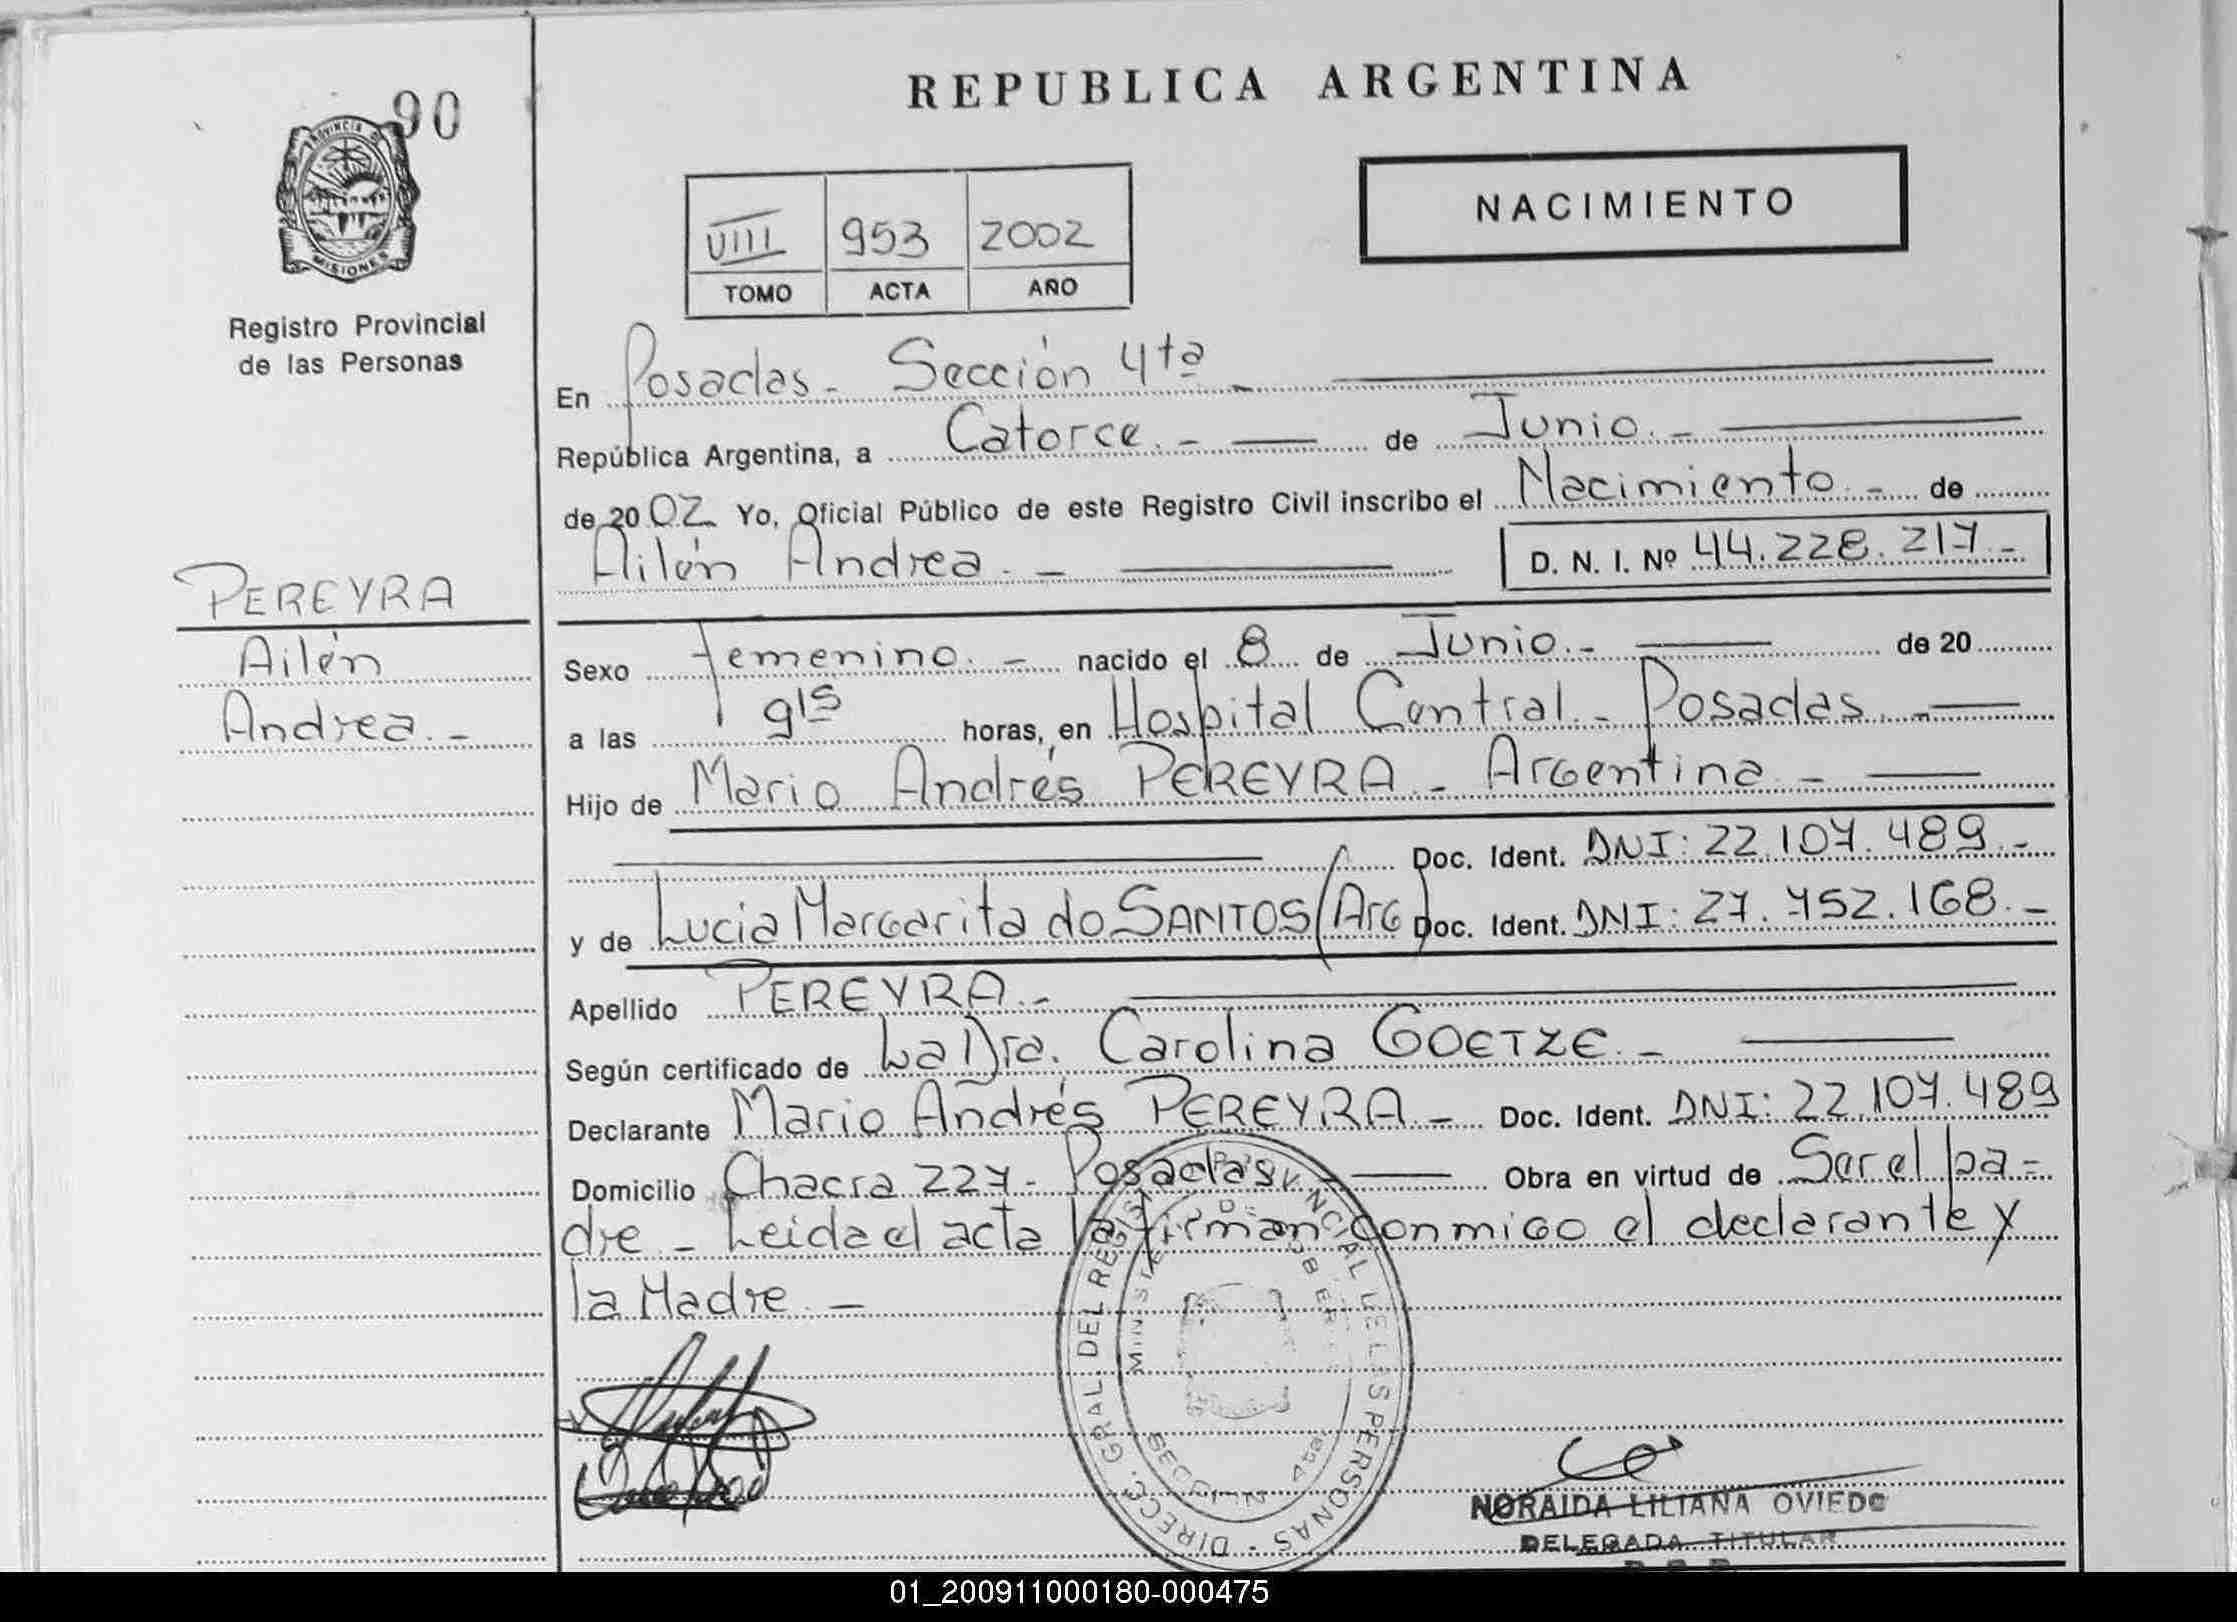 90
REPUBLICA ARGENTINA
PROVINCIA DE
MISIONES
Registro Provincial
de las Personas
NACIMIENTO
VIII 953 2002
TOMO ACTA AÑO
En Posadas - Sección 4ta -
República Argentina, a Catorce. - de Junio. -
de 2002 Yo, Oficial Público de este Registro Civil inscribo el Nacimiento - de
Ailén Andrea. - D. N. I. Nº 44.228.217 -
PEREYRA
Ailén
Andrea. -
Sexo femenino. - nacido el 8 de Junio. - de 20
a las 9 15 horas, en Hospital Central - Posadas. -
Hijo de Mario Andrés PEREYRA - Argentina -
Doc. Ident. DNI: 22.107.489. -
y de Lucia Margarita do SANTOS/Arg Doc. Ident. DNI: 27.452.168. -
Apellido PEREYRA. -
Según certificado de La Dra. Carolina GOETZE. -
Declarante Mario Andrés PEREYRA - Doc. Ident. DNI: 22.107.489
Domicilio Chacra 227 - Posadas - Obra en virtud de Ser el pa-
dre - Leida el acta la firman conmigo el declarante y
la Madre. -
DIREC. GRAL. DEL REGIST PROVINCIAL DE LAS PERSONAS
MINISTE DE GOBIER
SECCION 4ta.
NORAIDA LILIANA OVIEDO
DELEGADA TITULAR
01_200911000180-000475